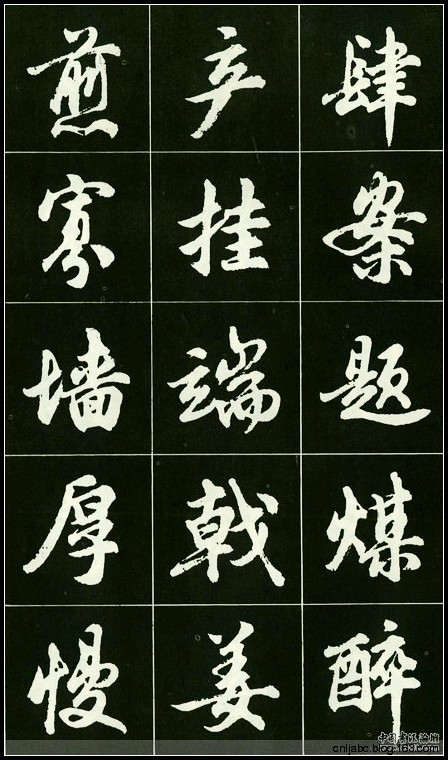 肆案题煤醉
产挂端戟姜
煎寡墙厚慢
中国书法论坛
cnljabc.blog.163.com